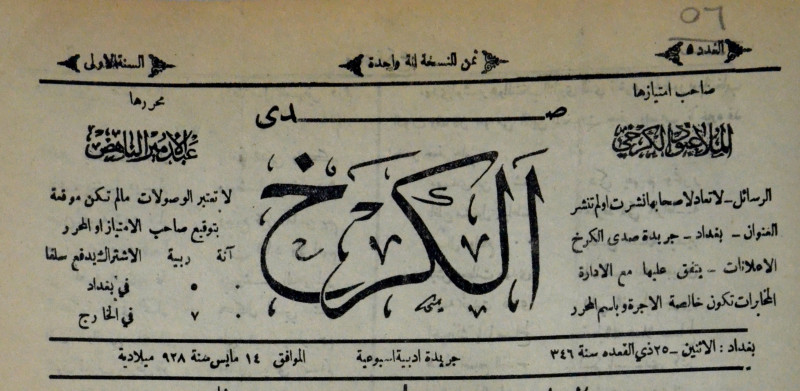 ٥٦
العدد ٥
ثمن النسخة انة واحدة
السنة الاولى
صاحب امتيازها
الملا عبود الكرخي
صدى
الكرخ
محررها
عبد الامير الناهض
الرسائل ــ لا تعاد لاصحابها نشرت اولم تنشر
العنوان ــ بغداد ــ جريدة صدى الكرخ
الاعلانات ــ يتفق عليها مع الادارة
المخابرات تكون خالصة الاجرة وباسم المحرر
لا تعتبر الوصولات مالم تكن موقعة
بتوقيع صاحب الامتياز او المحرر
آنة ربية الاشتراك يدفع سلفا
٠ ٥ في بغداد
٠ ٧ في الخارج
بغداد : الاثنين ــ ٢٥ ذي القعده سنة ٣٤٦
جريدة ادبية اسبوعية
الموافق ١٤ مايس سنة ٩٢٨ ميلادية